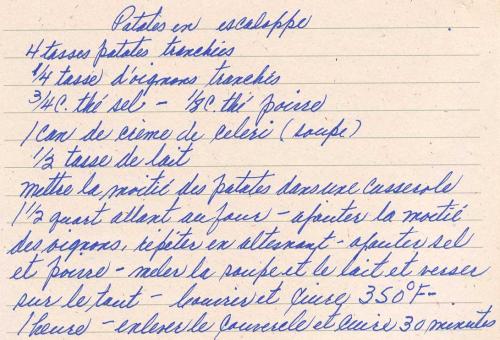 Patates en escaloppe
4 tasses patates tranchies
1/4 tasse d'oignons tranchis
3/4 C. thé sel - 1/8 C. thé poivre
1 can de crème de celeri (soupe)
1/2 tasse de lait
mettre la moitié des patates dans une casserole
1 1/2 quart allant au four - ajouter la moitié
des oignons, répéter en alternant - ajouter sel
et poivre - mêler la soupe et le lait et verser
sur le tout - couvrir et cuire, 350°F -
1 heure - enlever le couvercle et cuire 30 minutes